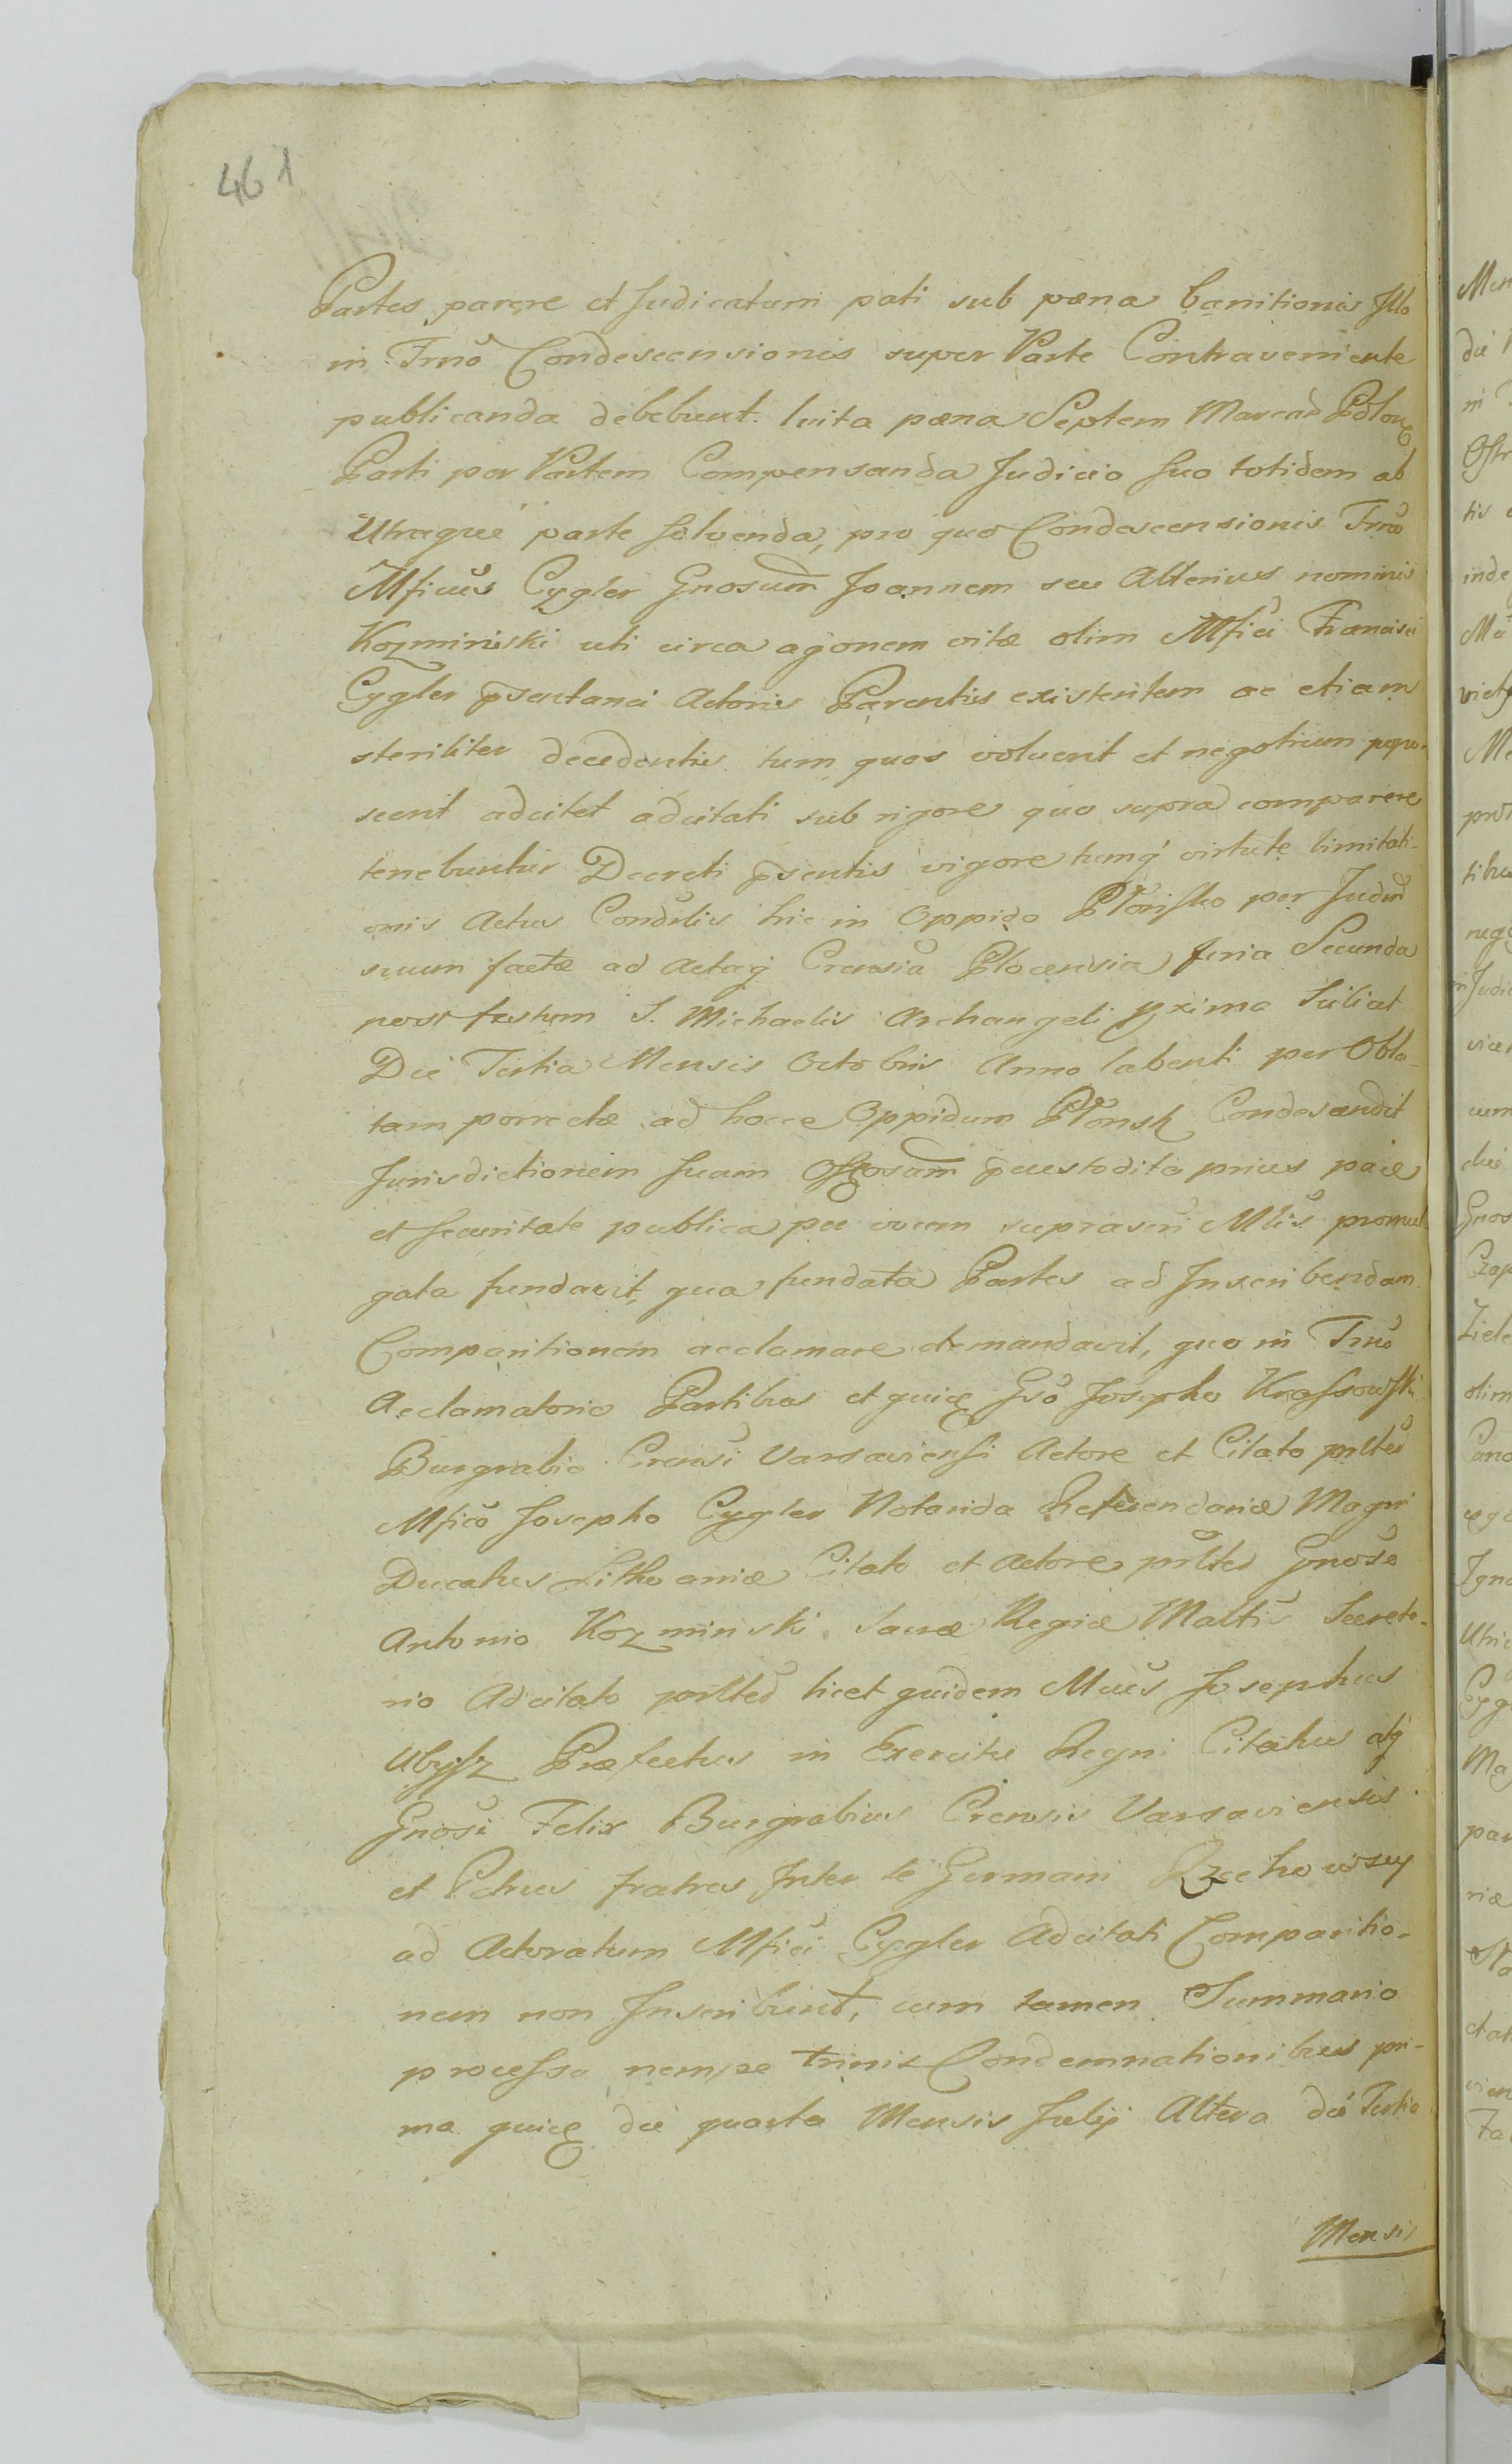 461
Partes parere et Judicatum pati sub pæna banitionis Illo
in Trno Condescensionis super Parte Contraveniente
publicanda debebunt. luita pæna Septem Marcar Polon
Parti per Partem Compensanda Judicio suo totidem ab
Utraque parte solvenda, pro quo Condescensionis Trno
Mficus Cygler Gnosum Joannem seu Alterius nominis
Kozminski uti circa agonem vitæ olim Mfici Francisci
Cygler psentanei Actoris Parentis existentem ac etiam
steriliter decedentis tum quos voluerit et negotium popo-
scerit adcitet adcitati sub rigore quo supra comparere
tenebuntur Decreti psentis vigore tumq virtute limitati-
onis Actus Condslis hic in Oppido Płońsko per Judm
suum factæ ad Actaq Crensia Plocensia feria Secunda
post festum S. Michaelis Archangeli pxima Scilicet
Die Tertia Mensis Octobris Anno labenti per Obla-
tam porrectæ ad hocce Oppidum Płońsk Condescendit
Jurisdictionem suam Offosam pcustodita prius pace
et securitate publica per vocem suprascri Mlis promul
gata fundavit, qua fundata Partes ad Inscribendam
Comparitionem acclamare demandavit, quo in Trno
Acclamatorio Partibus et quidem Gso Josepho Krassowski
Burgrabio Crensi Varsaviensi Actore et Citato psltes
Mfico Josepho Cygler Notario Referendariæ Magni
Ducatus Lithvaniæ Citato et Actore psltes Gnoso
Antonio Kozminski Sacræ Regiæ Maltis Secreta-
rio Adcitato psltes licet quidem Mcus Josephus
Ubysz Præfectus in Exercitu Regni Citatus atq
Gnosi Felix Burgrabius Crensis Varsaviensis
et Petrus fratres Inter se Germani Rzechowscy
ad Actoratum Mfici Cygler Adcitati Comparitio-
nem non Inscribunt, cum tamen Summario
processu nempe trinis Condemnationibus pri-
ma quidem die quarta Mensis Julij Altera die Tertia
Mensis